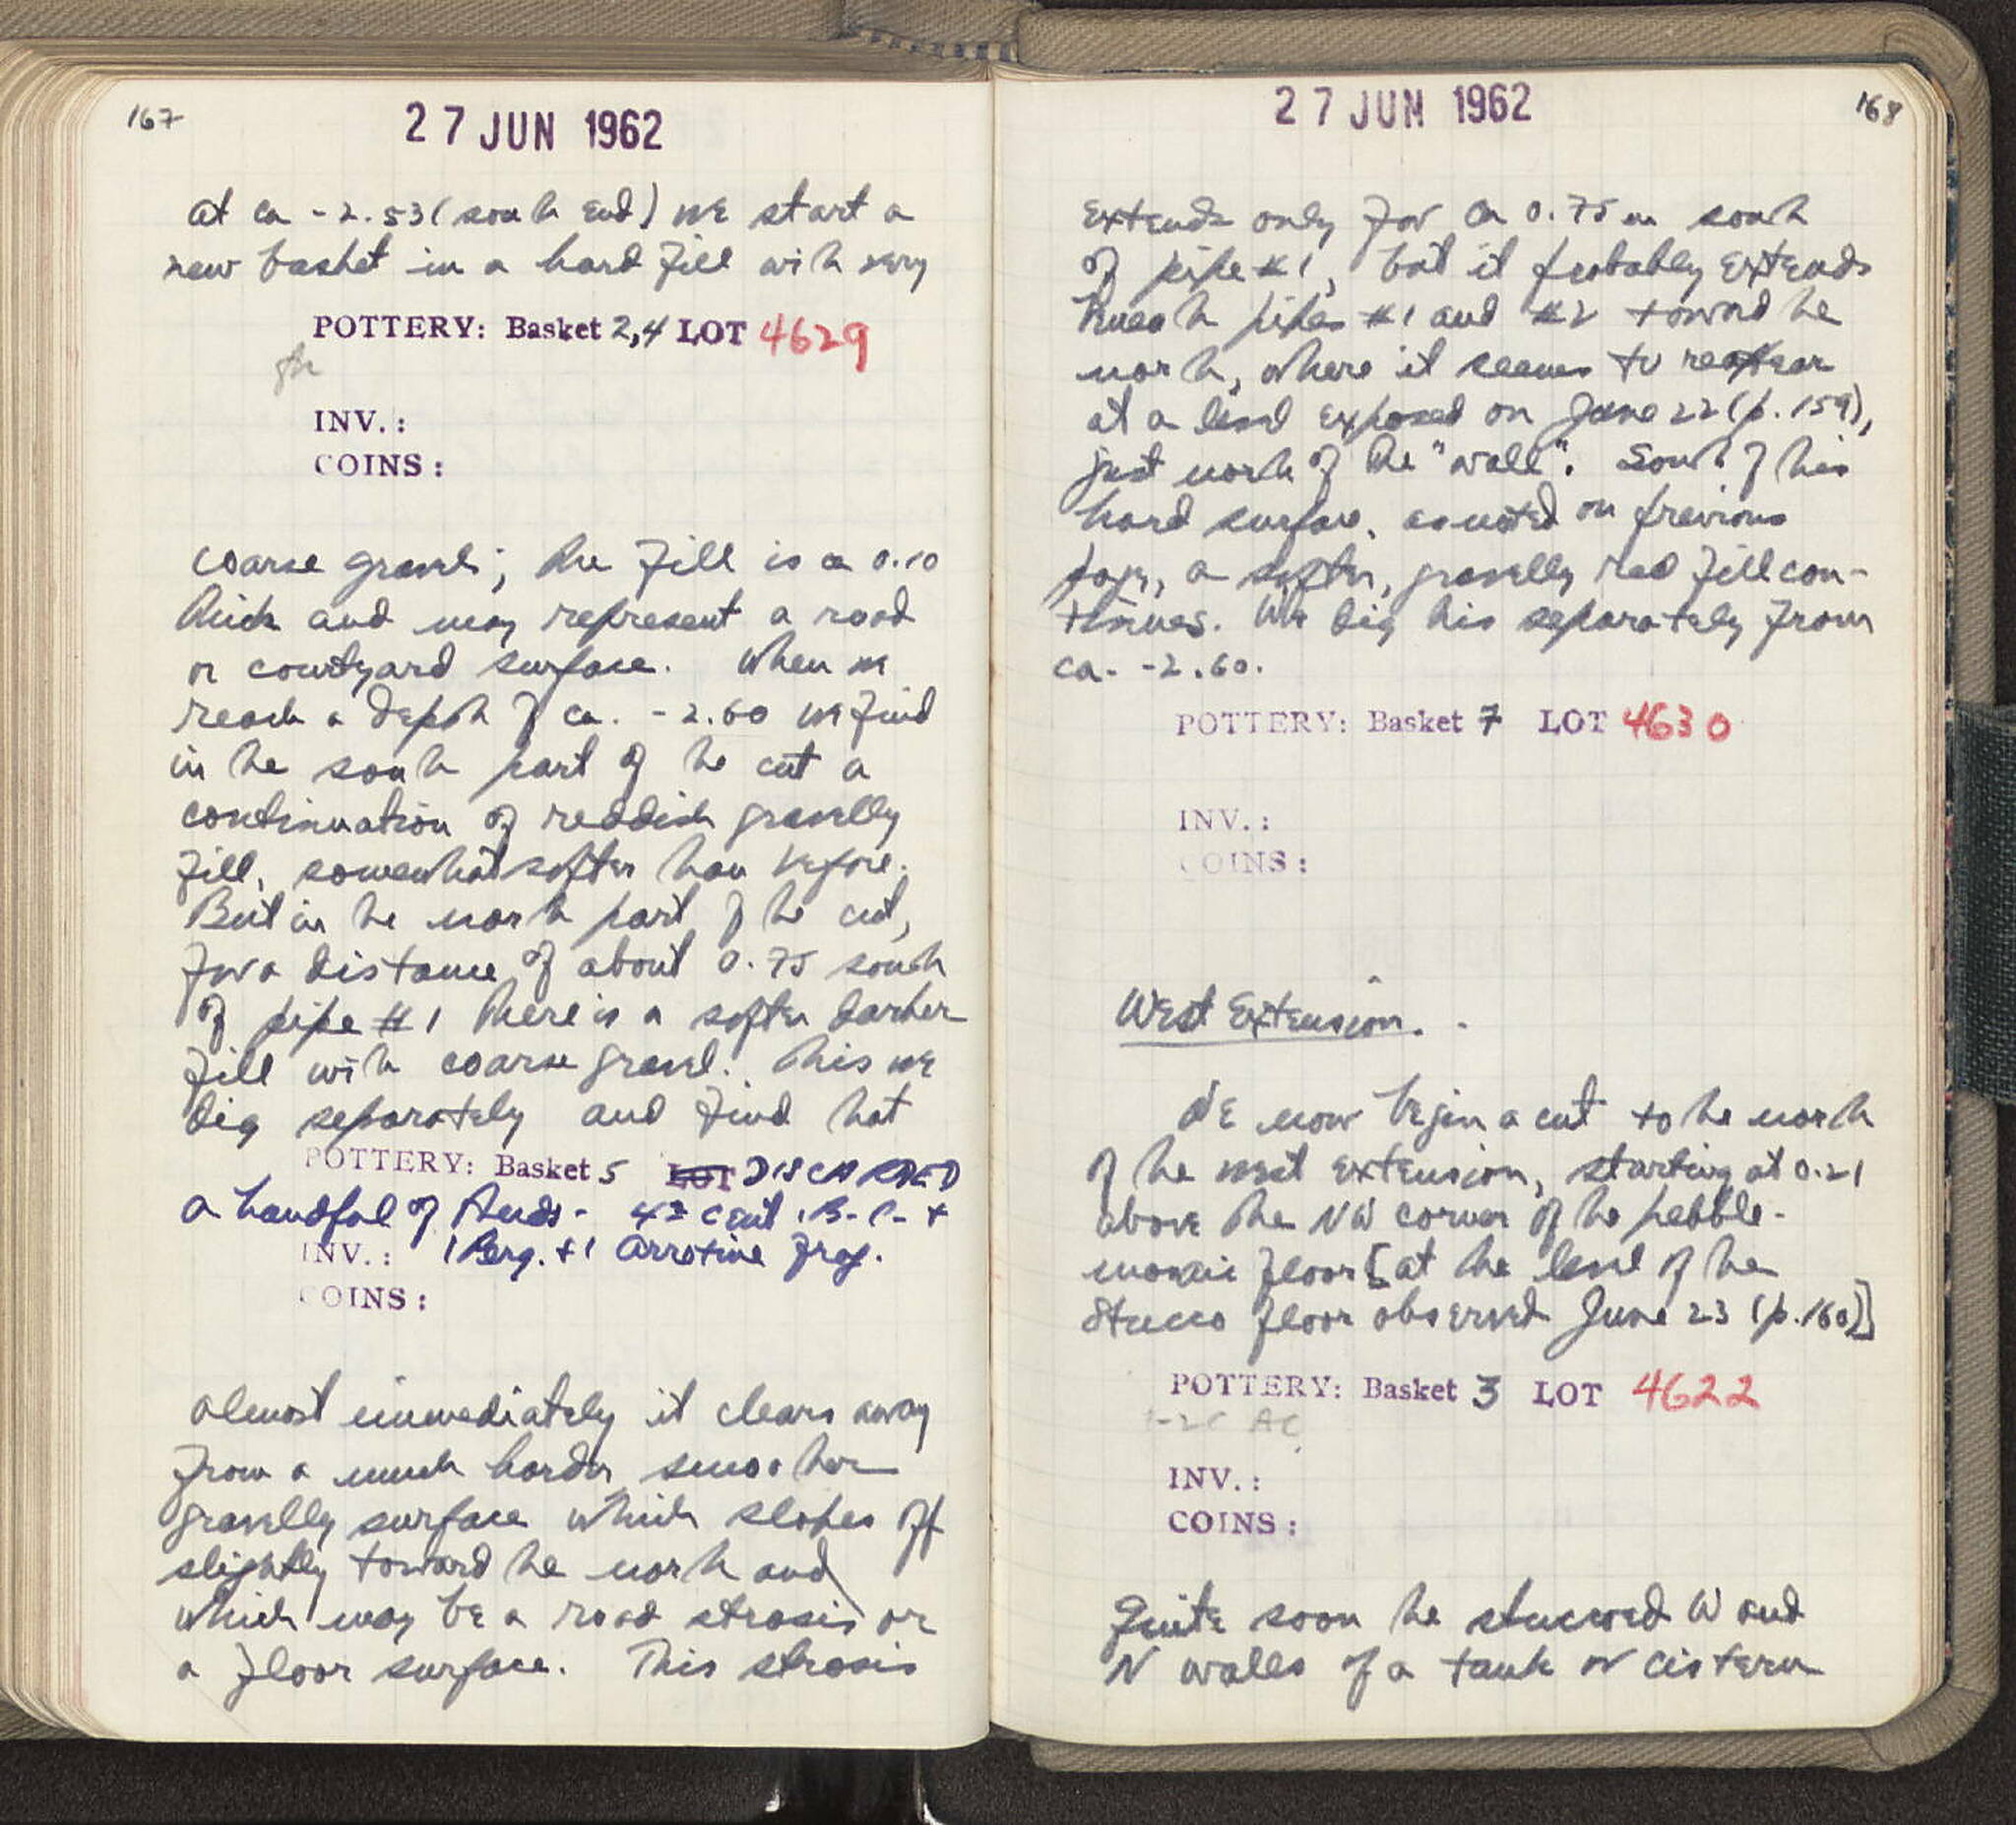 167
27 JUN 1962
at ca -2.53 (south end) we start a
new basket in a hard fill with very
POTTERY: Basket 2,4 LOT 4629
INV.:
COINS:
coarse gravel; the fill is ca 0.10
thick and may represent a road
or courtyard surface. When we
reach a depth of ca. -2.60 we find
in the south part of the cut a
continuation of reddish gravelly
fill, somewhat softer than before.
But in the north part of the cut,
for a distance of about 0.75 south
of pipe #1 there is a softer darker
fill with coarse gravel. This we
dig separately and find that
POTTERY: Basket 5 LOT DISCARDED
a handful of sherds - 4th cent. B.C. +
INV.: 1 Perg. + 1 Arretine frag.
COINS:
almost immediately it clears away
from a much harder smoother
gravelly surface which slopes off
slightly toward the north and
which may be a road strosis or
a floor surface. This strosis
27 JUN 1962
168
extends only for ca 0.75 m south
of pipe #1, but it probably extends
beneath pipes #1 and #2 toward the
north, where it seems to reappear
at a level exposed on June 22 (p. 159),
just north of the "wall". South of this
hard surface, as noted on previous
page, a softer, gravelly red fill con-
tinues. We dig this separately from
ca. -2.60.
POTTERY: Basket 7 LOT 4630
INV.:
COINS:
West Extension.
We now begin a cut to the north
of the west extension, starting at 0.21
above the NW corner of the pebble-
mosaic floor [at the level of the
stucco floor observed June 23 (p.160)]
POTTERY: Basket 3 LOT 4622
1-2C AC
INV.:
COINS:
Quite soon the stuccoed W and
N walls of a tank or cistern